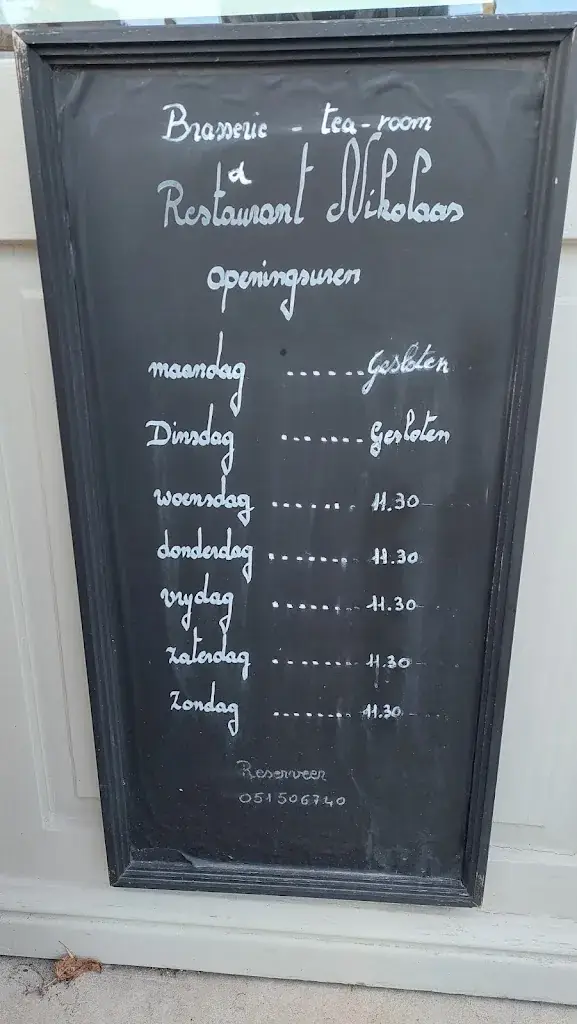 Brasserie - tea-room
d
Restaurant Nikolaas
openingsuren
maandag ....... Gesloten
Dinsdag ....... Gesloten
woensdag ....... 11.30
donderdag ........ 11.30
vrijdag ........ 11.30
zaterdag ........ 11.30
zondag ........ 11.30
Reserveer
051506740